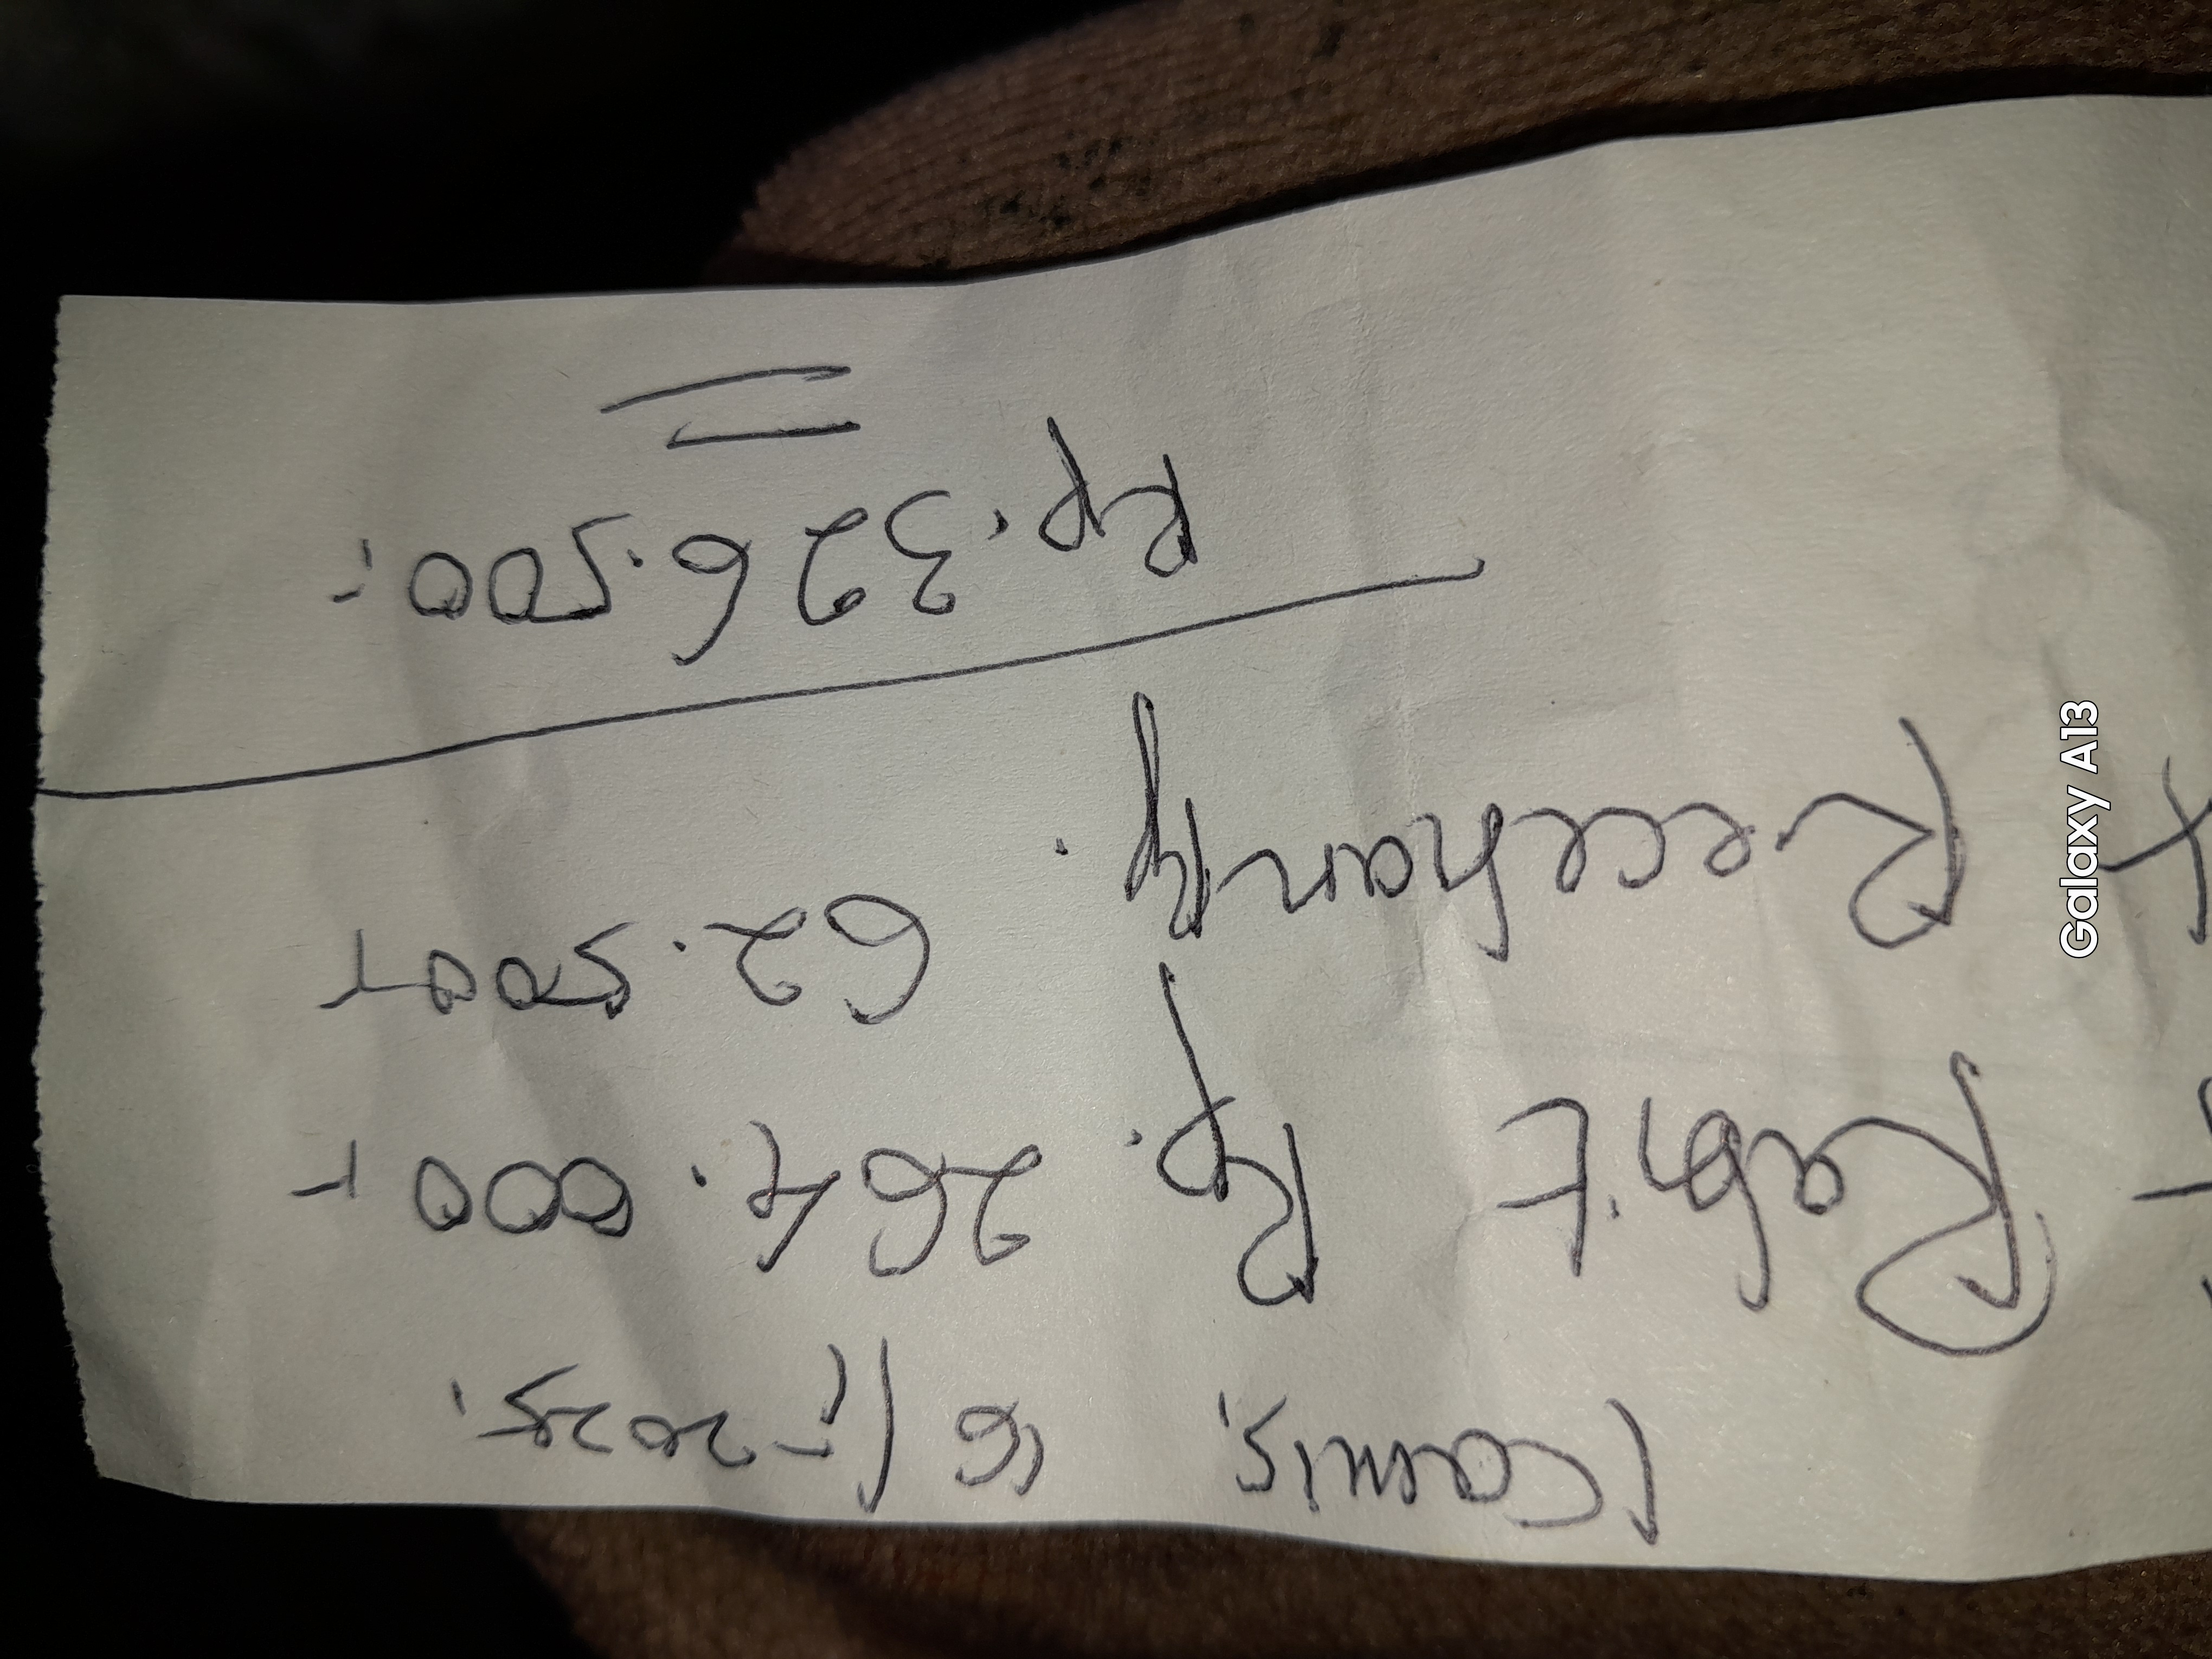 Kamis, 16/1-2025.
Rabit Rp. 264.000,-
Receh an 62.500,-
Rp. 326.500,-
Galaxy A13